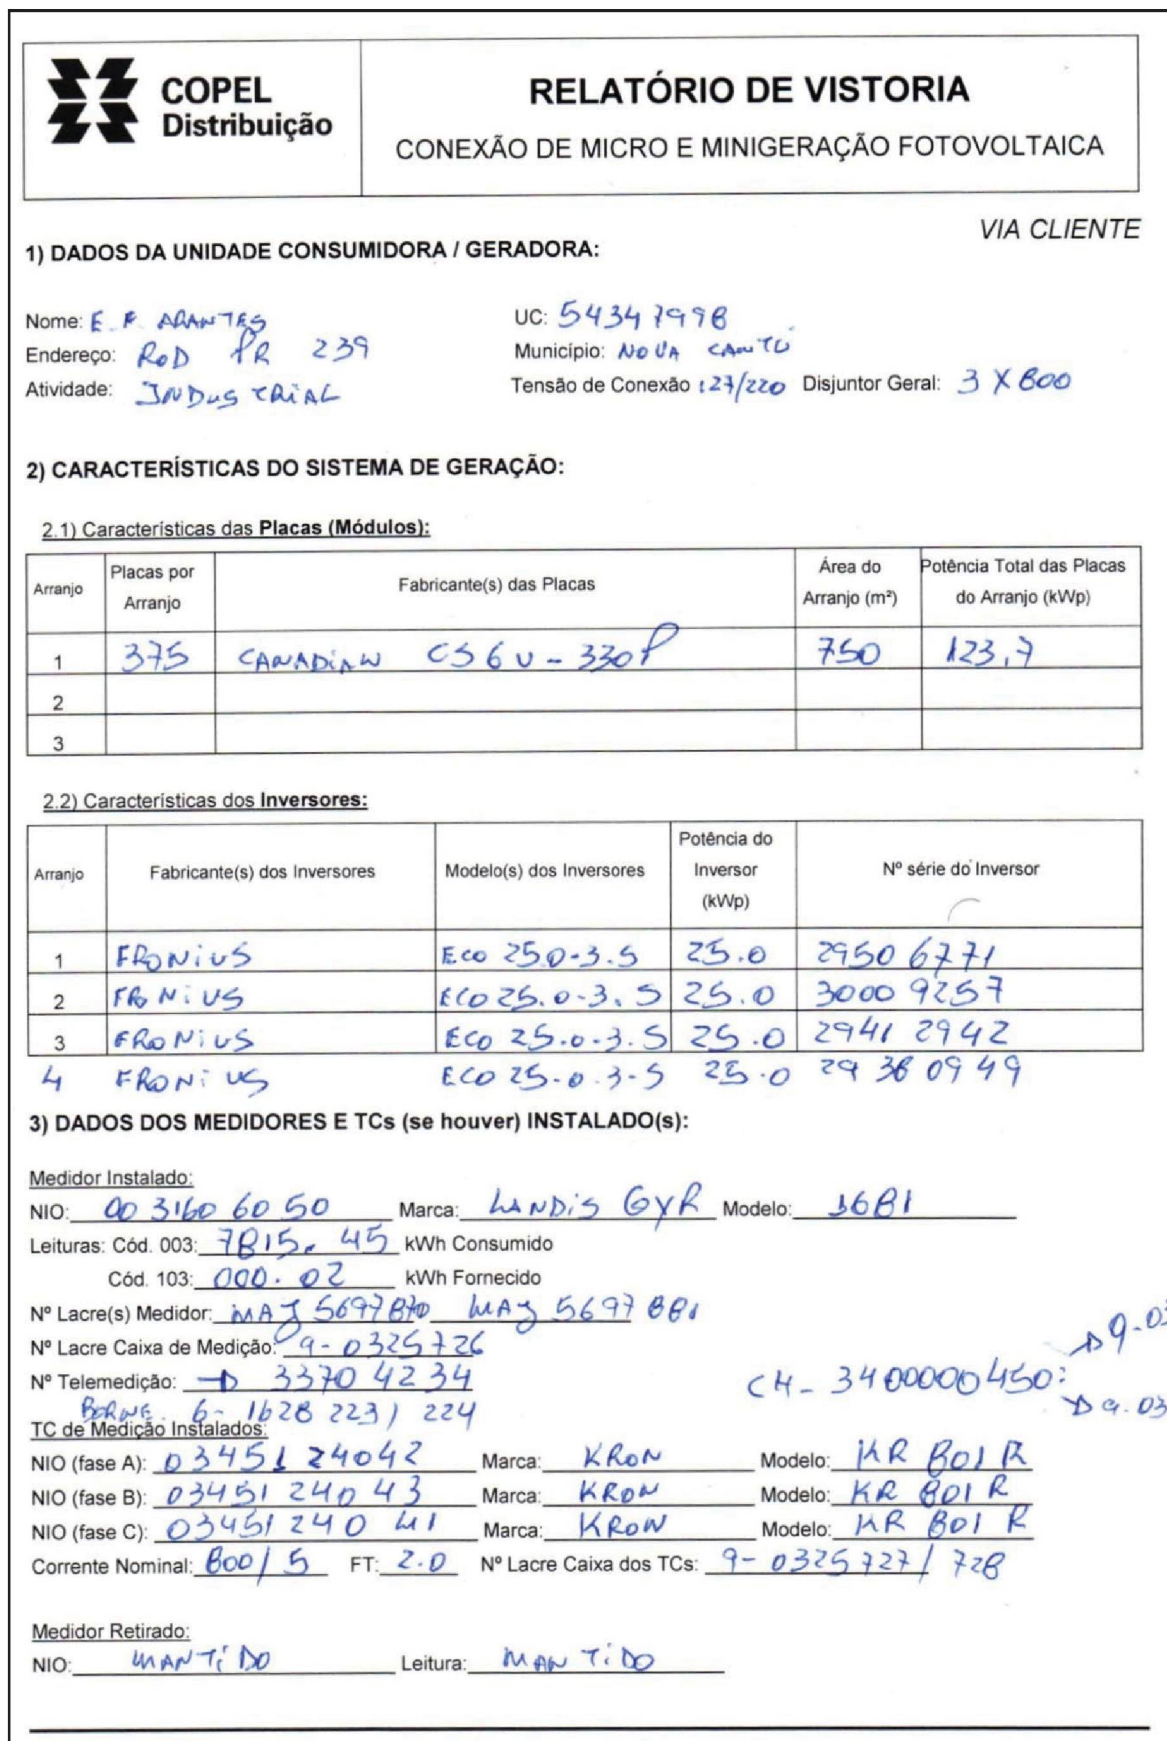 COPEL
Distribuição
RELATÓRIO DE VISTORIA
CONEXÃO DE MICRO E MINIGERAÇÃO FOTOVOLTAICA
VIA CLIENTE
1) DADOS DA UNIDADE CONSUMIDORA / GERADORA:
Nome: E. F. ARANTES UC: 54347998
Endereço: ROD PR 239 Município: NOVA CANTÚ
Atividade: INDUSTRIAL Tensão de Conexão 127/220 Disjuntor Geral: 3 X 800
2) CARACTERÍSTICAS DO SISTEMA DE GERAÇÃO:
2.1) Características das Placas (Módulos):
Arranjo Placas por Arranjo Fabricante(s) das Placas Área do Arranjo (m²) Potência Total das Placas do Arranjo (kWp)
1 375 CANADIAN CS6U-330P 750 123,7
2
3
2.2) Características dos Inversores:
Arranjo Fabricante(s) dos Inversores Modelo(s) dos Inversores Potência do Inversor (kWp) Nº série do Inversor
1 FRONIUS ECO 25.0-3.S 25.0 29506771
2 FRONIUS ECO 25.0-3.S 25.0 30009257
3 FRONIUS ECO 25.0-3.S 25.0 29412942
4 FRONIUS ECO 25.0.3-S 25.0 29380949
3) DADOS DOS MEDIDORES E TCs (se houver) INSTALADO(s):
Medidor Instalado:
NIO: 00 3160 60 50 Marca: LANDIS GYR Modelo: 1681
Leituras: Cód. 003: 7815. 45 kWh Consumido
Cód. 103: 000.02 kWh Fornecido
Nº Lacre(s) Medidor: MAJ 5697870 MAJ 5697881
Nº Lacre Caixa de Medição: 9-0325726
Nº Telemedição: 3370 4234 CH-3400000450:
BORNE 6-1628 223/224
TC de Medição Instalados:
NIO (fase A): 03451 24042 Marca: KRON Modelo: KR 801 R
NIO (fase B): 03451 24043 Marca: KRON Modelo: KR 801 R
NIO (fase C): 03451 24041 Marca: KRON Modelo: KR 801 R
Corrente Nominal: 800/5 FT: 2.0 Nº Lacre Caixa dos TCs: 9-0325727/728
Medidor Retirado:
NIO: MANTIDO Leitura: MANTIDO